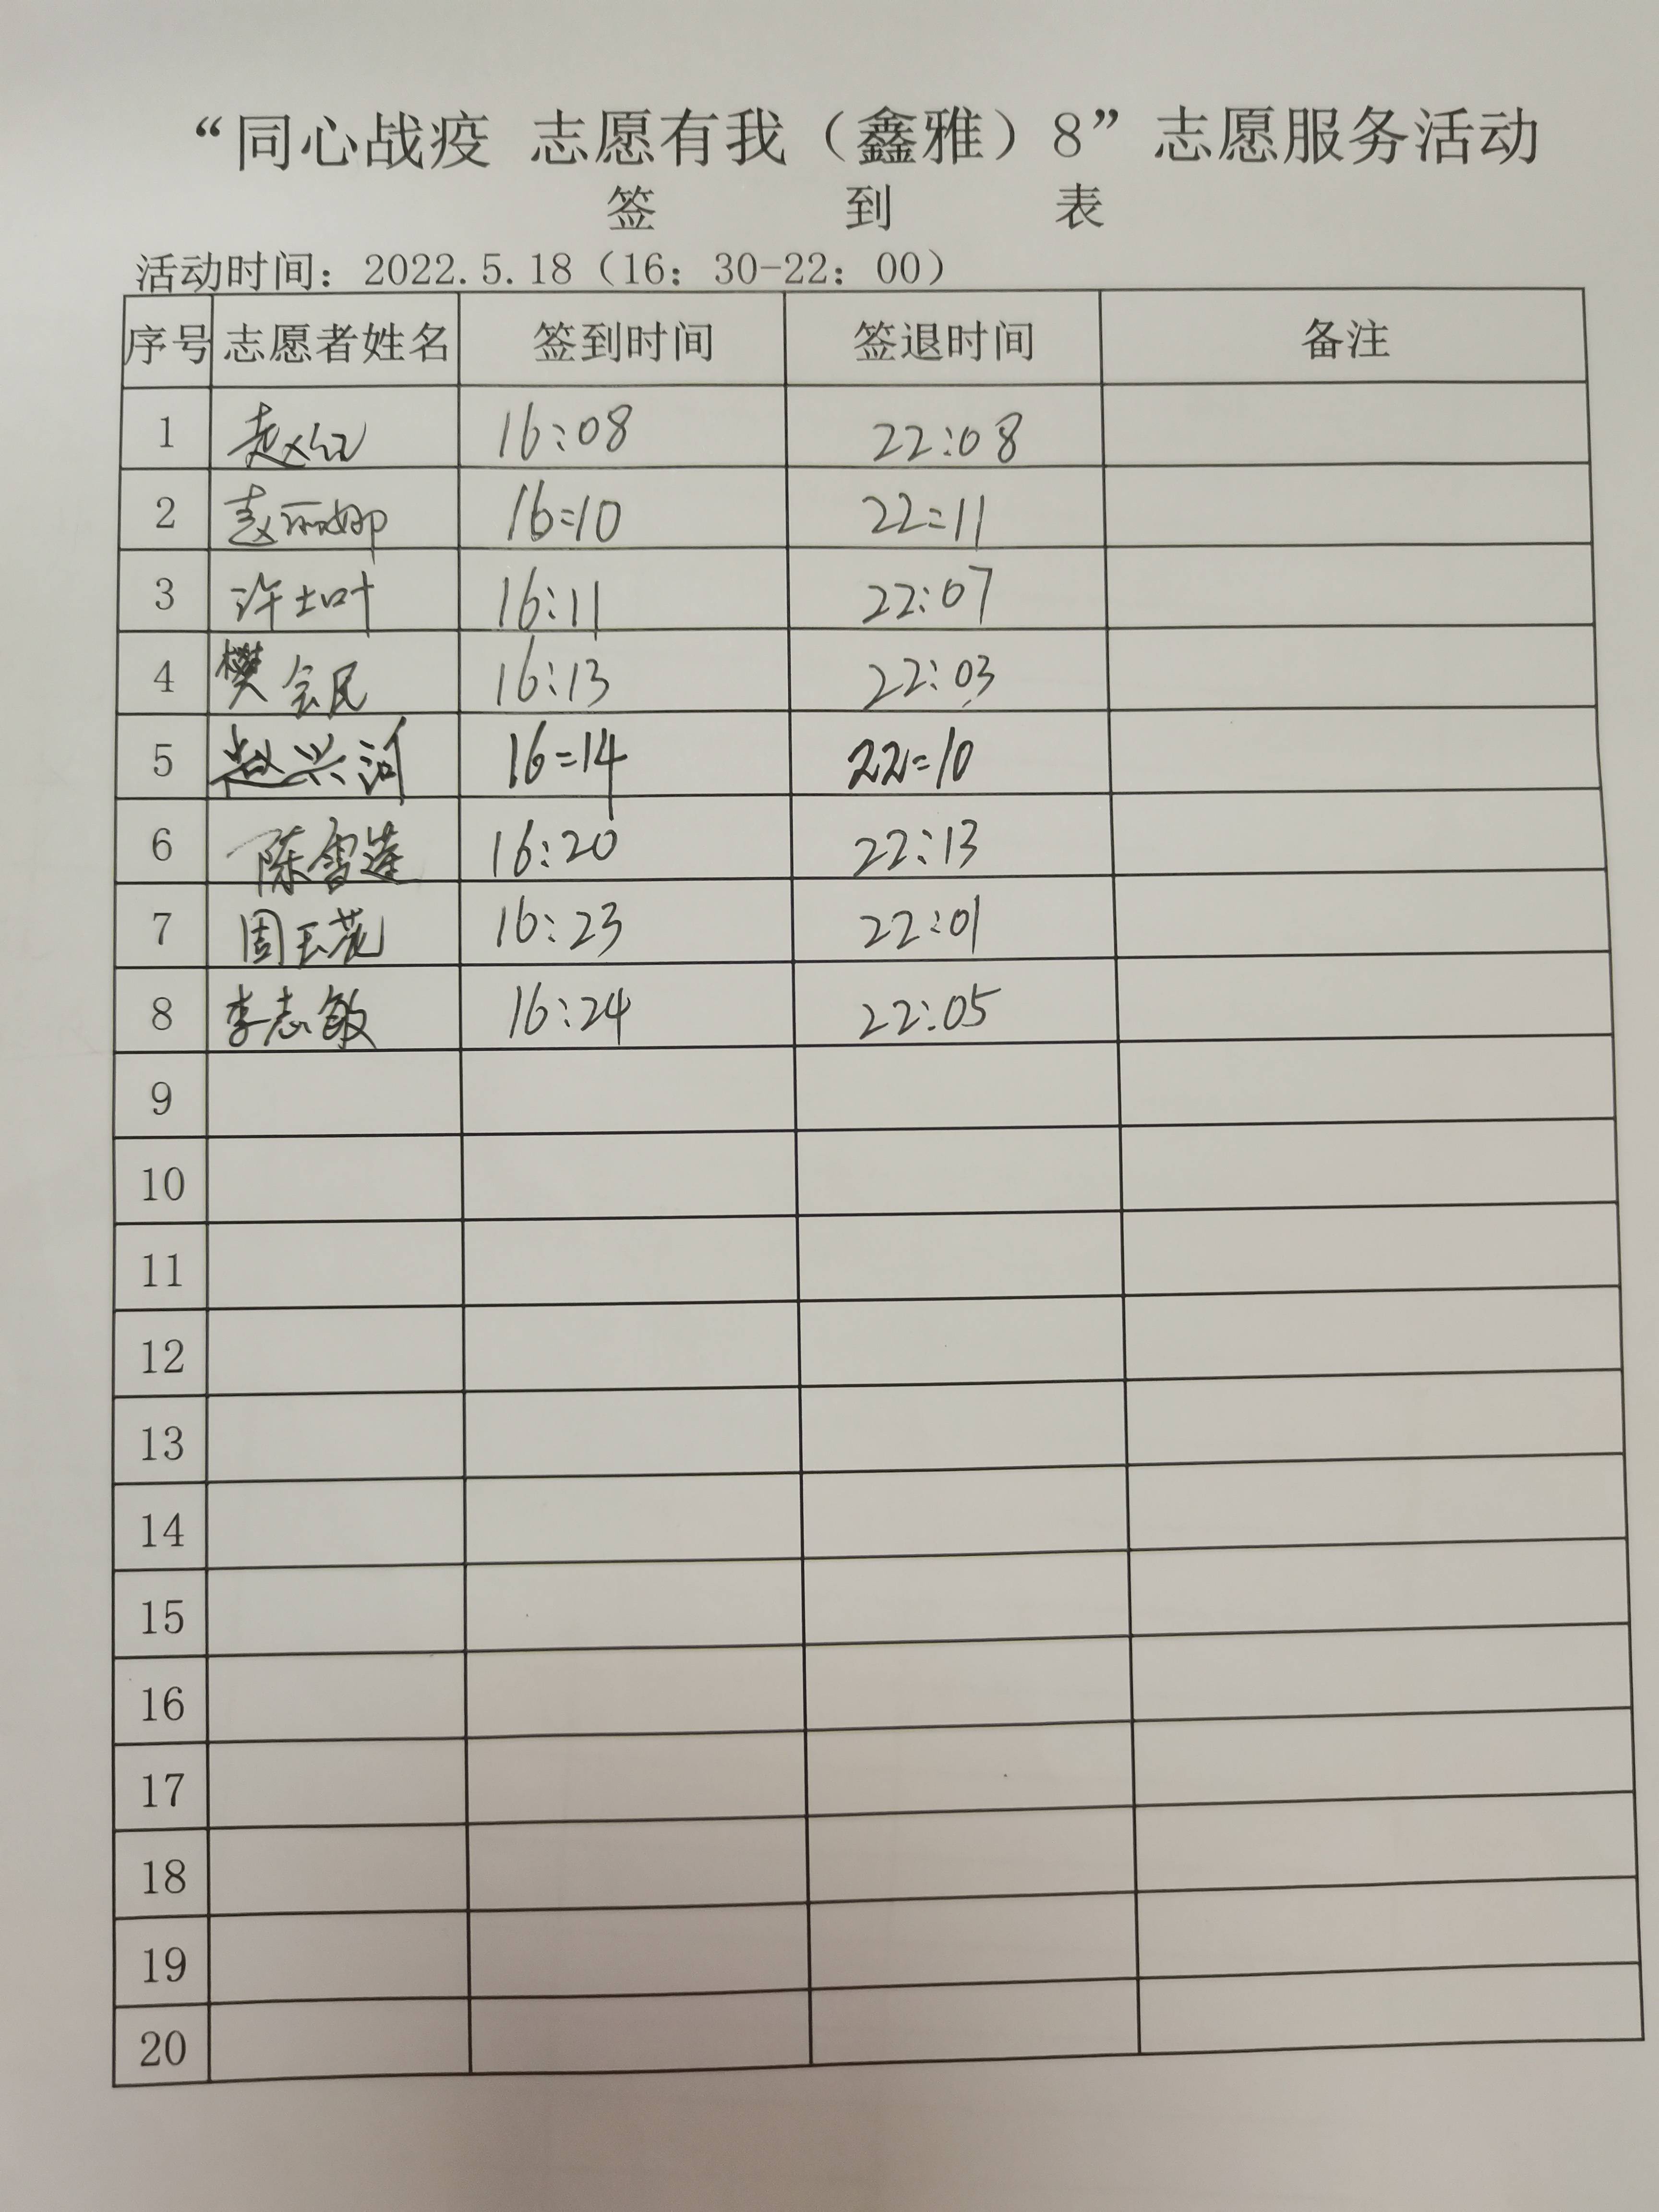 “同心战疫 志愿有我（鑫雅）8”志愿服务活动
签 到 表
活动时间：2022.5.18（16：30-22：00）
序号 志愿者姓名 签到时间 签退时间 备注
1 赵红 16:08 22:08
2 赵丽娜 16:10 22:11
3 许士叶 16:11 22:07
4 樊会民 16:13 22:03
5 赵兴河 16:14 22:10
6 陈雪莲 16:20 22:13
7 周玉花 16:23 22:01
8 李志敏 16:24 22:05
9
10
11
12
13
14
15
16
17
18
19
20